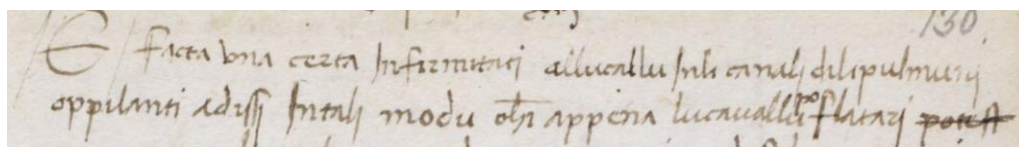 130
E facta una certa Infirmitati allucallu Inli canali dili pulmuni
oppilanti adissi Intali modu chi appena lucavallu po flatari potest